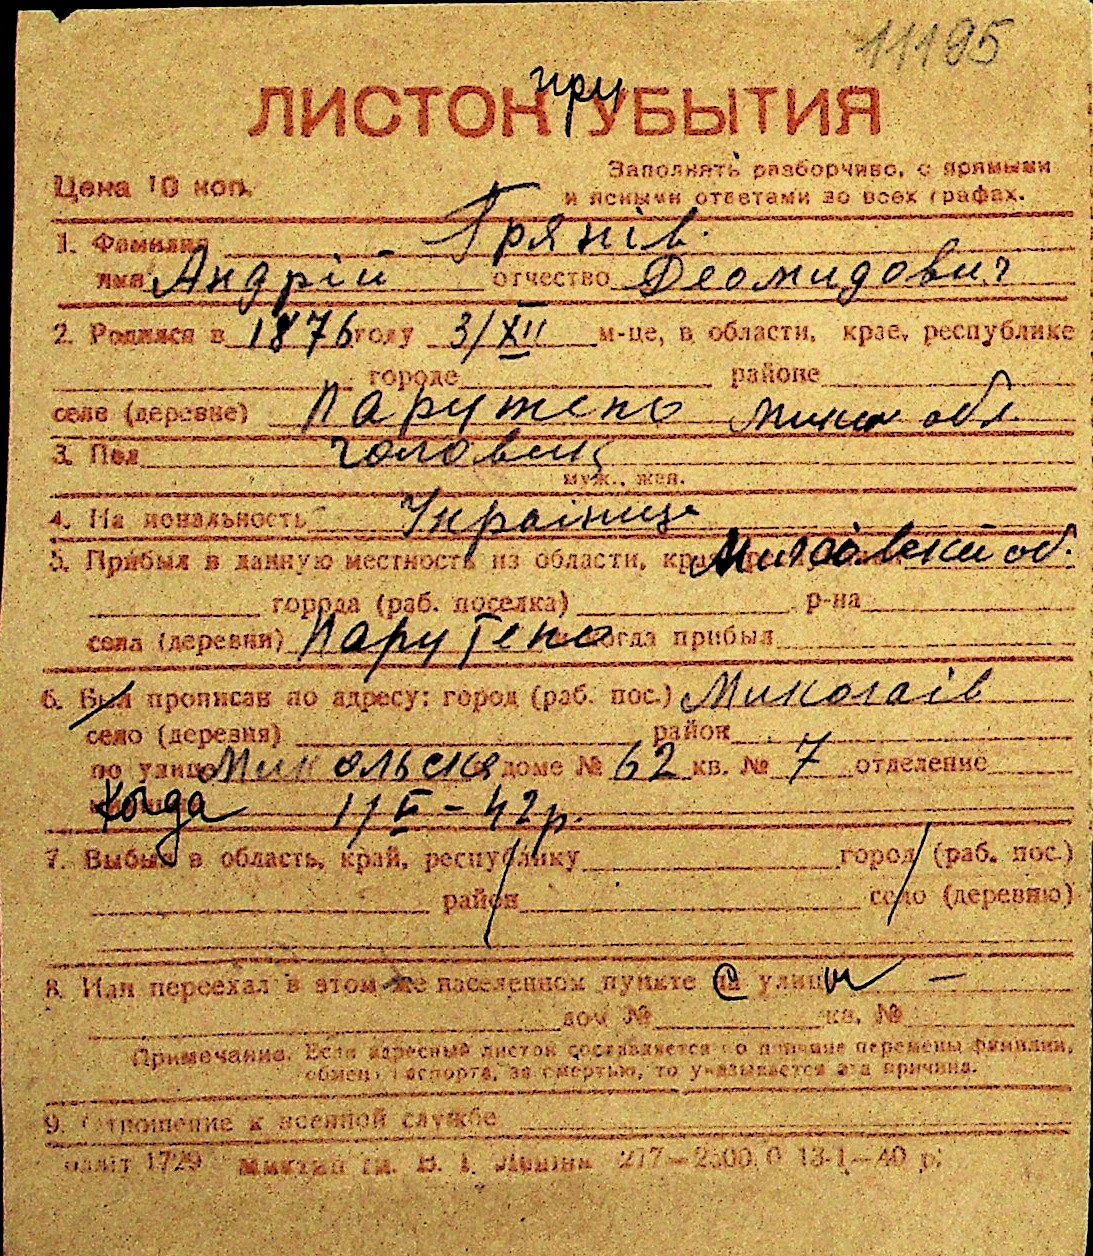 11195
ЛИСТОК при УБЫТИЯ
Цена 10 коп.
Заполнять разборчиво, с прямыми
и ясными ответами во всех графах.
1. Фамилия Грянів.
имя Андрій отчество Деомидович
2. Родился в 1876 году 3/XII м-це, в области, крае, республике
городе районе
селе (деревне) Парутено Мики обл.
3. Пол чоловіч
муж., жен.
4. Национальность Українець
5. Прибыл в данную местность из области, края, Миколаївської об.
города (раб. поселка) р-на
села (деревни) Парутено и когда прибыл
6. Был прописан по адресу: город (раб. пос.) Миколаїв
село (деревня) район
по улице Микольска доме № 62 кв. № 7 отделение
Когда 1/V - 42 р.
7. Выбыл в область, край, республику город (раб. пос.)
район село (деревню)
8. Или переехал в этом же населенном пункте с улицы —
дом № кв. №
Примечание. Если адресный листок составляется по причине перемены фамилии,
обмена паспорта, за смертью, то указывается эта причина.
9. Отношение к военной службе
1729 ім. В. І. Леніна 277—2500,0 13-1—40 р.